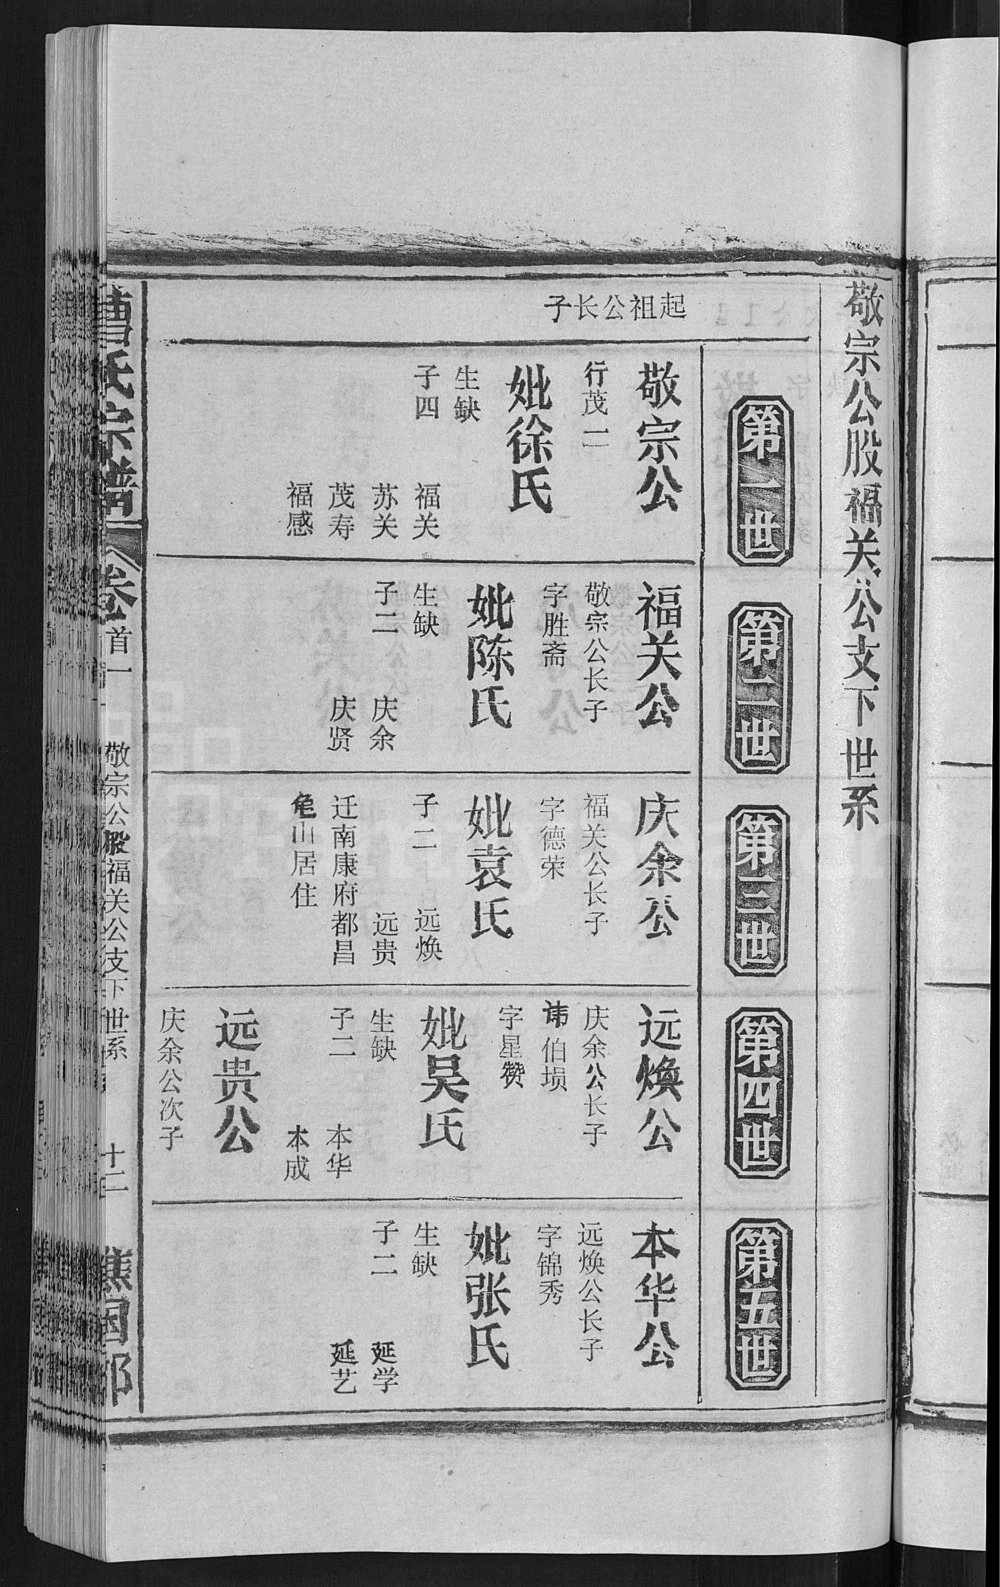 敬宗公股福关公支下世系
第一世
第二世
第三世
第四世
第五世
起祖公长子
敬宗公
行茂一
妣徐氏
生缺
子四
福关
苏关
茂寿
福感
福关公
敬宗公长子
字胜斋
妣陈氏
生缺
子二
庆余
庆贤
庆余公
福关公长子
字德荣
妣袁氏
子二
远焕
远贵
迁南康府都昌
龟山居住
远焕公
庆余公长子
讳伯埙
字星赞
妣吴氏
生缺
子二
本华
本成
远贵公
庆余公次子
本华公
远焕公长子
字锦秀
妣张氏
生缺
子二
延学
延艺
曹氏宗谱
卷首一
敬宗公股福关公支下世系
十二
谯国郡